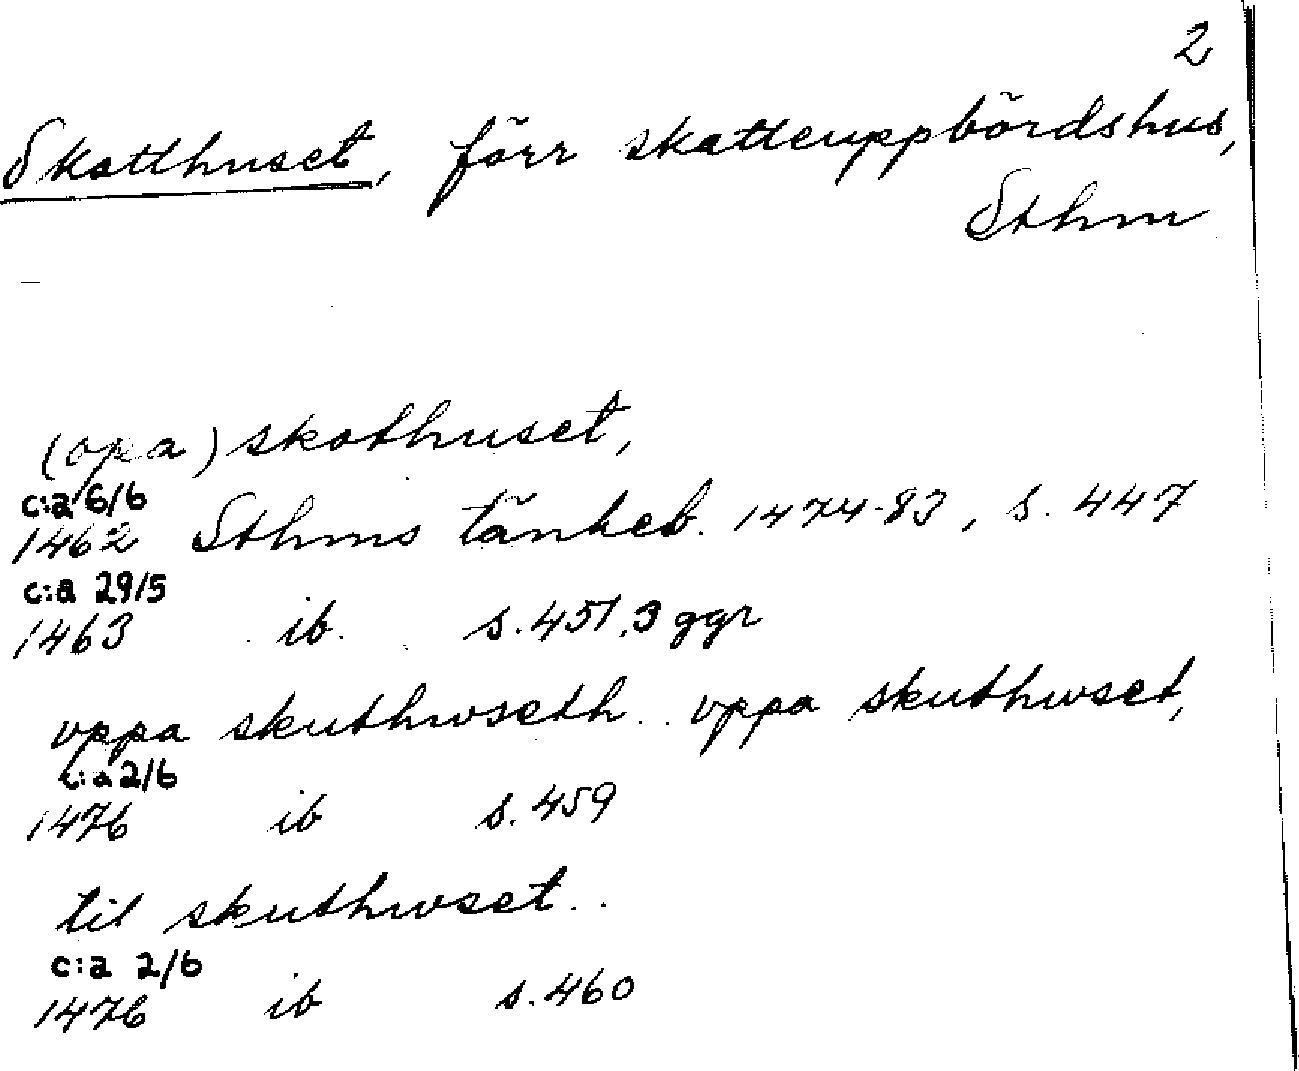 2
Skotthuset, förr skatteuppbördshus,
Sthm
(opa) skothuset,
c:a 6/6
1462 Sthms tänkeb. 1474-83, s. 447
c:a 29/5
1463 ib. s. 451, 3 ggr
vppa skuthwseth .. vppa skuthwset,
c:a 2/6
1476 ib s. 459
til skuthwset ..
c:a 2/6
1476 ib s. 460